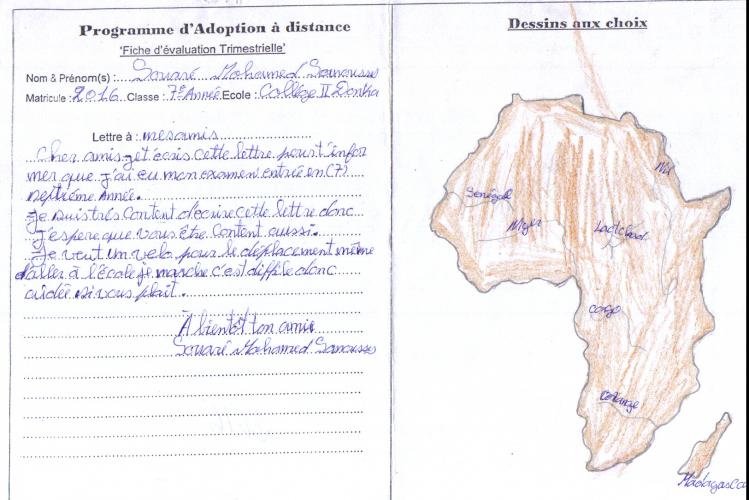 Programme d'Adoption à distance
'Fiche d'évaluation Trimestrielle'
Nom & Prénom(s) : Souaré Mohamed Sanoussi
Matricule : 2016 Classe : 7e Année Ecole : Collège II Donka
Lettre à : mes amis
Cher amis je t'écris cette lettre pour t'infor
mer que j'ai eu mon examen entrée en (7)
septième Année.
Je suis très content d'ecrire cette lettre donc
J'espere que vous être content aussi.
Je veut un velo pour le déplacement même
d'aller à l'école je marche c'est diffile donc
aidée si vous plait.
À bientôt ton amie
Souaré Mohamed Sanoussi
Dessins aux choix
Nil
Sénégal
Niger
Lactchad
Congo
Madagasca